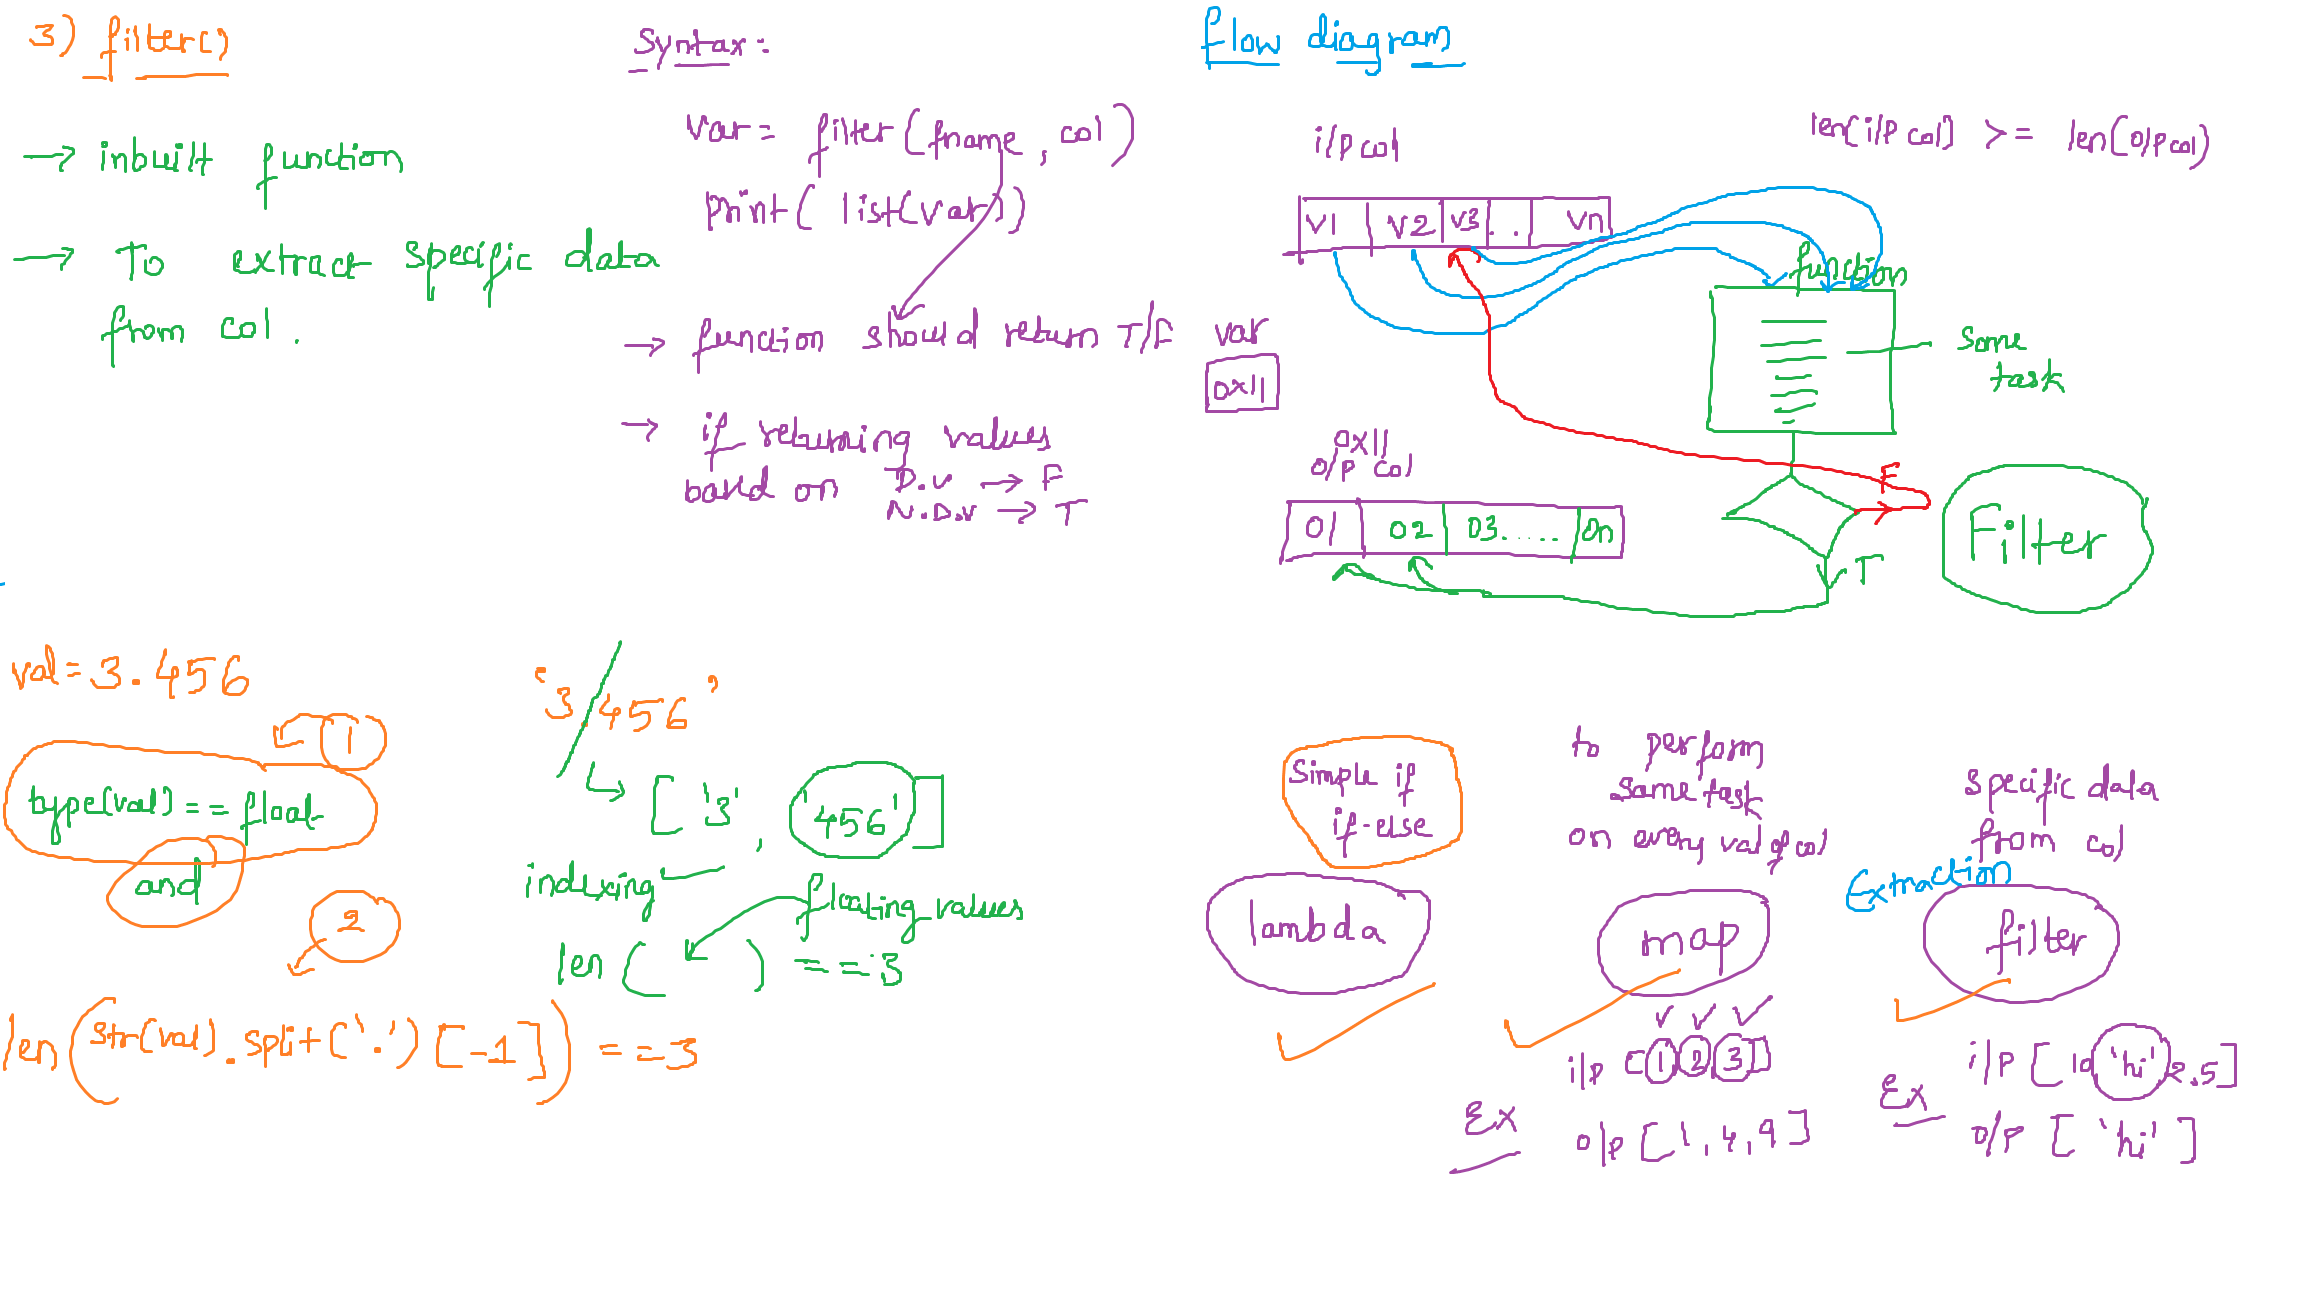 3) filter()
→ inbuilt function
→ To extract specific data
from col.
Syntax:
var = filter(fname, col)
print( list(var))
→ function should return T/F
→ if returning values
based on D.V → F
N.D.V → T
flow diagram
i/p col
len(i/p col) >= len(o/p col)
v1 v2 v3 .. vn
function
Same
task
var
0x11
0x11
o/p col
01 02 03..... 0n
F
T
Filter
val = 3.456
1
type(val) == float
and
2
len(str(val).split('.')[-1]) == 3
'3.456'
['3', '456']
indexing
floating values
len( ) == 3
Simple if
if-else
lambda
to perform
same task
on every val of col
map
i/p [1,2,3]
Ex
o/p [1,4,9]
specific data
from col
Extraction
filter
i/p [10 'hi' 2.5]
Ex
o/p ['hi']